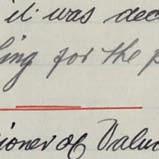 it was dec
ing for the p
ioner of Valu